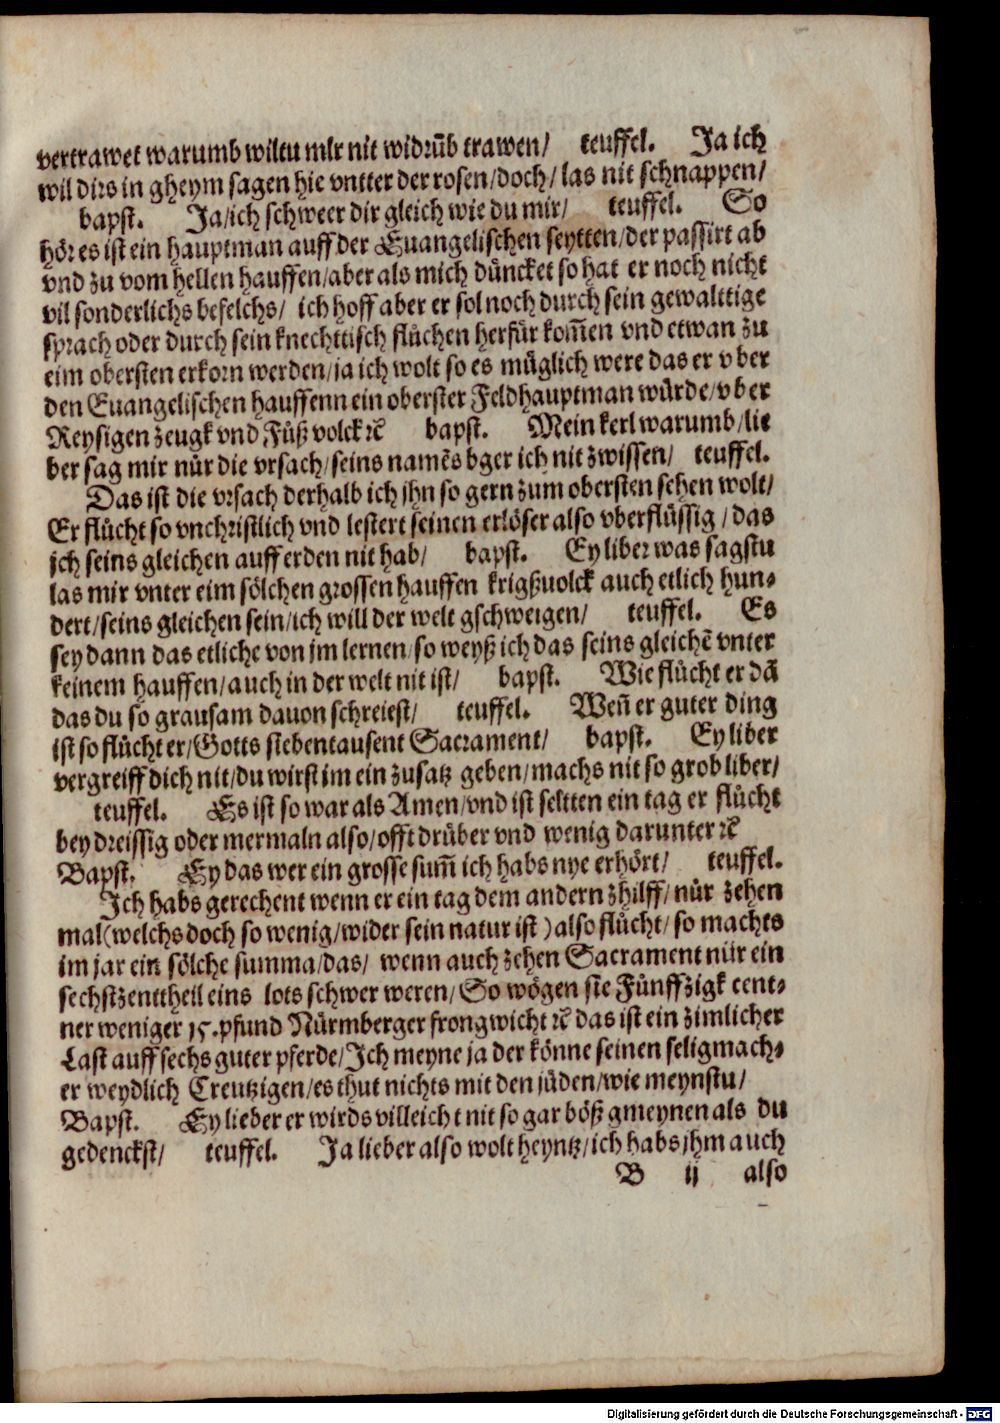 vertrawet warumb wiltu mir nit widrūb trawen/ teuffel. Ja ich
wil dirs in gheym sagen hie vntter der rosen/doch/ las nit schnappen/
bapst. Ja/ich schweer dir gleich wie du mir/ teuffel. So
hör es ist ein hauptman auff der Euangelischen seytten/der passirt ab
vnd zu vom hellen hauffen/aber als mich düncket so hat er noch nicht
vil sonderlichs befelchs/ ich hoff aber er sol noch durch sein gewalttige
sprach oder durch sein knechttisch flůchen herfür kom̄en vnd etwan zu
eim obersten erkorn werden/ja ich wolt so es müglich were das er vber
den Euangelischen hauffenn ein oberster Feldhauptman würde/vber
Reysigen zeugk vnd Fůß volck ꝛc̄ bapst. Mein kerl warumb/lie
ber sag mir nůr die vrsach/seins namēs bger ich nit zwissen/ teuffel.
Das ist die vrsach derhalb ich jhn so gern zum obersten sehen wolt/
Er flůcht so vnchristlich vnd lestert seinen erlöser also vberflüssig/das
jch seins gleichen auff erden nit hab/ bapst. Ey liber was sagstu
las mir vnter eim sölchen grossen hauffen krigßuolck auch etlich hun⸗
dert/seins gleichen sein/ich will der welt gschweigen/ teuffel. Es
sey dann das etliche von jm lernen/so weyß ich das seins gleichē vnter
keinem hauffen/auch in der welt nit ist/ bapst. Wie flůcht er dā
das du so grausam dauon schreiest/ teuffel. Wen̄ er guter ding
ist so flůcht er/Gotts siebentausent Sacrament/ bapst. Ey liber
vergreiff dich nit/du wirst im ein zusatz geben/machs nit so grob liber/
teuffel. Es ist so war als Amen/vnd ist seltten ein tag er flůcht
bey dreissig oder mermaln also/offt drüber vnd wenig darunter ꝛc̄
Bapst. Ey das wer ein grosse sum̄ ich habs nye erhört/ teuffel.
Ich habs gerechent wenn er ein tag dem andern zhilff/ nůr zehen
mal(welchs doch so wenig/wider sein natur ist)also flůcht/so machts
im jar ein sölche summa/das/ wenn auch zehen Sacrament nůr ein
sechstzenttheil eins lots schwer weren/So wögen sie Fünffzigk cent⸗
ner weniger 15.pfund Nürmberger frongwicht ꝛc̄ das ist ein zimlicher
Last auff sechs guter pferde/Ich meyne ja der könne seinen seligmach⸗
er weydlich Creutzigen/es thut nichts mit den jüden/wie meynstu/
Bapst. Ey lieber er wirds villeicht nit so gar böß gmeynen als du
gedenckst/ teuffel. Ja lieber also wolt heyntz/ich habs jhm auch
B ij also
Digitalisierung gefördert durch die Deutsche Forschungsgemeinschaft - DFG